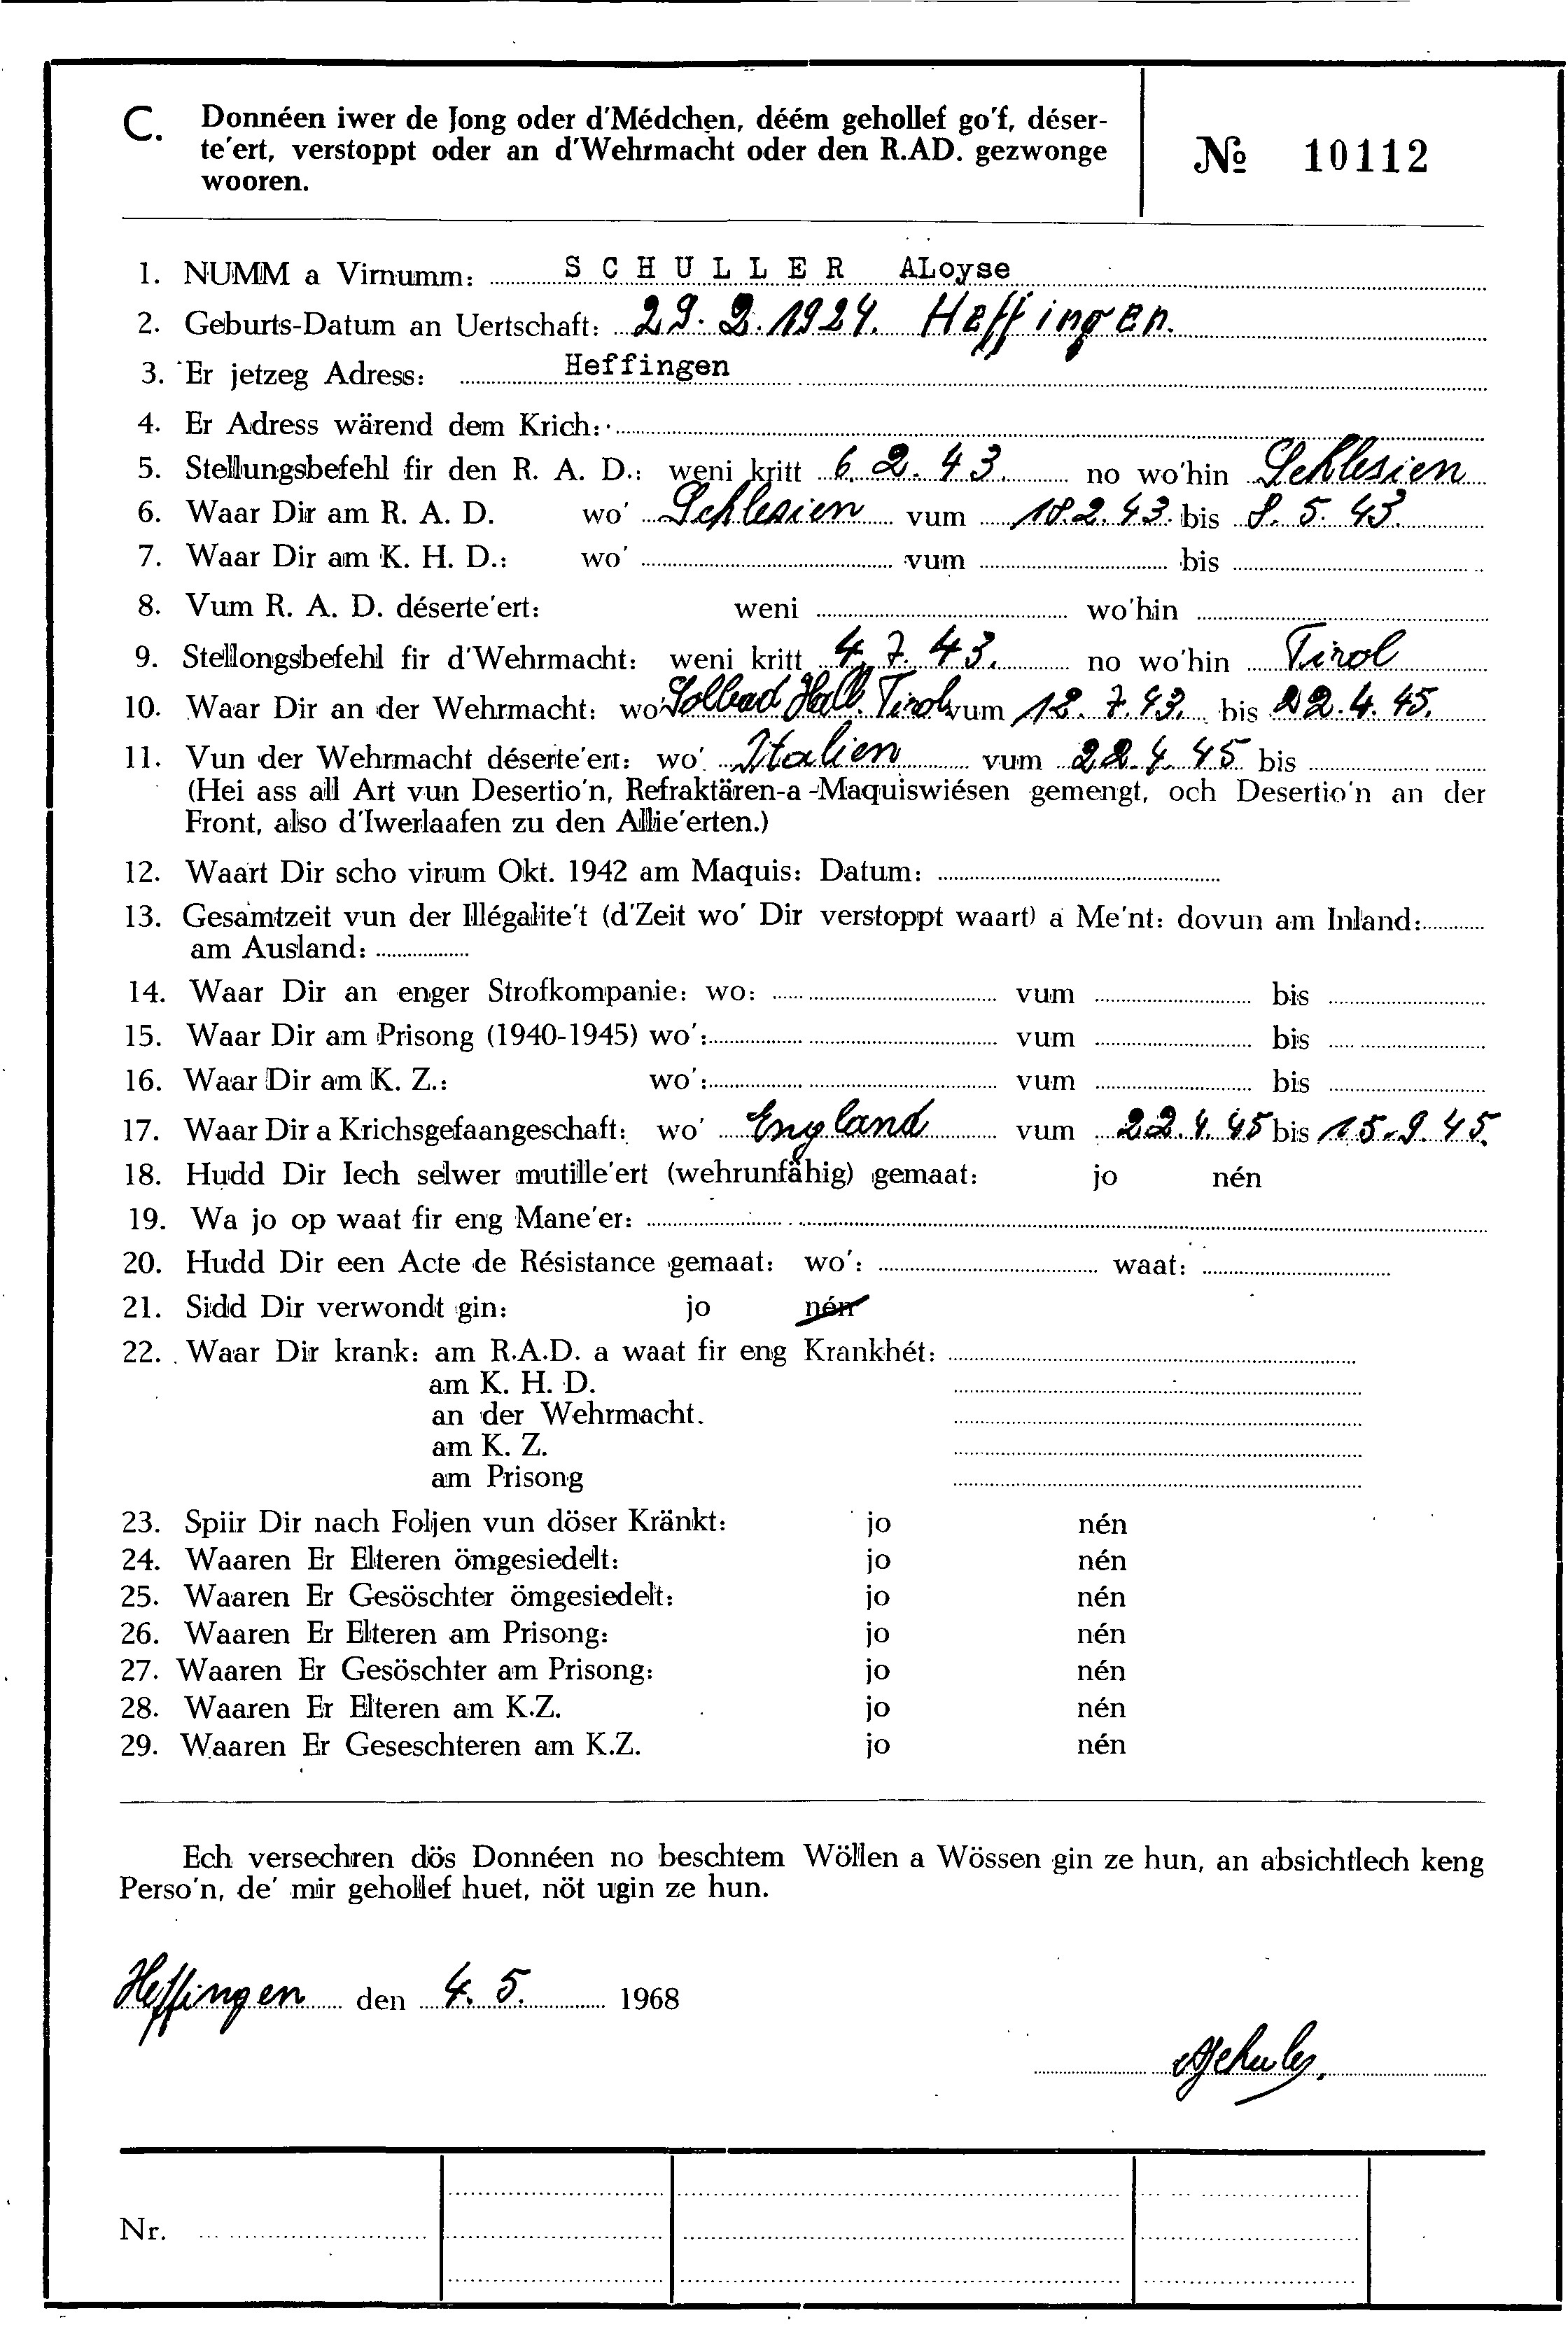 C. Donnéen iwer de Jong oder d'Médchen, déém gehollef go'f, déser-
te'ert, verstoppt oder an d'Wehrmacht oder den R.AD. gezwonge
wooren.
№ 10112
1. NUMM a Virnumm: SCHULLER ALoyse
2. Geburts-Datum an Uertschaft: 29.2.1924. Heffingen.
3. Er jetzeg Adress: Heffingen
4. Er Adress wärend dem Krich:
5. Stellungsbefehl fir den R. A. D.: weni kritt 6.2.43. no wo'hin Schlesien
6. Waar Dir am R. A. D. wo' Schlesien vum 18.2.43. bis 8.5.43.
7. Waar Dir am K. H. D.: wo' vum bis
8. Vum R. A. D. déserte'ert: weni wo'hin
9. Stellongsbefehl fir d'Wehrmacht: weni kritt 4.7.43. no wo'hin Tirol
10. Waar Dir an der Wehrmacht: wo' Solbad Hall. Tirol vum 12.7.43. bis 22.4.45.
11. Vun der Wehrmacht déserte'ert: wo' Italien vum 22.4.45 bis
(Hei ass all Art vun Desertio'n, Refraktären-a-Maquiswiésen gemengt, och Desertio'n an der
Front, also d'Iwerlaafen zu den Allie'erten.)
12. Waart Dir scho virum Okt. 1942 am Maquis: Datum:
13. Gesamtzeit vun der Illégalite't (d'Zeit wo' Dir verstoppt waart) a Me'nt: dovun am Inland:
am Ausland:
14. Waar Dir an enger Strofkompanie: wo: vum bis
15. Waar Dir am Prisong (1940-1945) wo': vum bis
16. Waar Dir am K. Z.: wo': vum bis
17. Waar Dir a Krichsgefaangeschaft: wo' England vum 22.4.45 bis 15.9.45.
18. Hudd Dir Iech selwer mutille'ert (wehrunfähig) gemaat: jo nén
19. Wa jo op waat fir eng Mane'er:
20. Hudd Dir een Acte de Résistance gemaat: wo': waat:
21. Sidd Dir verwondt gin: jo nén
22. Waar Dir krank: am R.A.D. a waat fir eng Krankhét:
am K. H. D.
an der Wehrmacht.
am K. Z.
am Prisong
23. Spiir Dir nach Foljen vun döser Kränkt: jo nén
24. Waaren Er Elteren ömgesiedelt: jo nén
25. Waaren Er Gesöschter ömgesiedelt: jo nén
26. Waaren Er Elteren am Prisong: jo nén
27. Waaren Er Gesöschter am Prisong: jo nén
28. Waaren Er Elteren am K.Z. jo nén
29. Waaren Er Geseschteren am K.Z. jo nén
Ech versechren dös Donnéen no beschtem Wöllen a Wössen gin ze hun, an absichtlech keng
Perso'n, de' mir gehollef huet, nöt ugin ze hun.
Heffingen den 4.5. 1968
Nr.